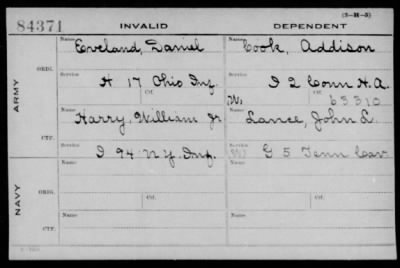 84371
INVALID
DEPENDENT
(3-H-5)
ARMY
ORIG.
Name
Eveland, Daniel
Name
Cook, Addison
Service
H 17 Ohio Inf.
Ctf.
Service
I 2 Conn H.A.
Ctf.
W.
63310
CTF.
Name
Harry, William Jr.
Name
Lance, John L.
Service
I 94 N.Y. Inf.
Service
G 5 Tenn Cav
NAVY
ORIG.
Name
Ctf.
Name
Ctf.
CTF.
Name
Name